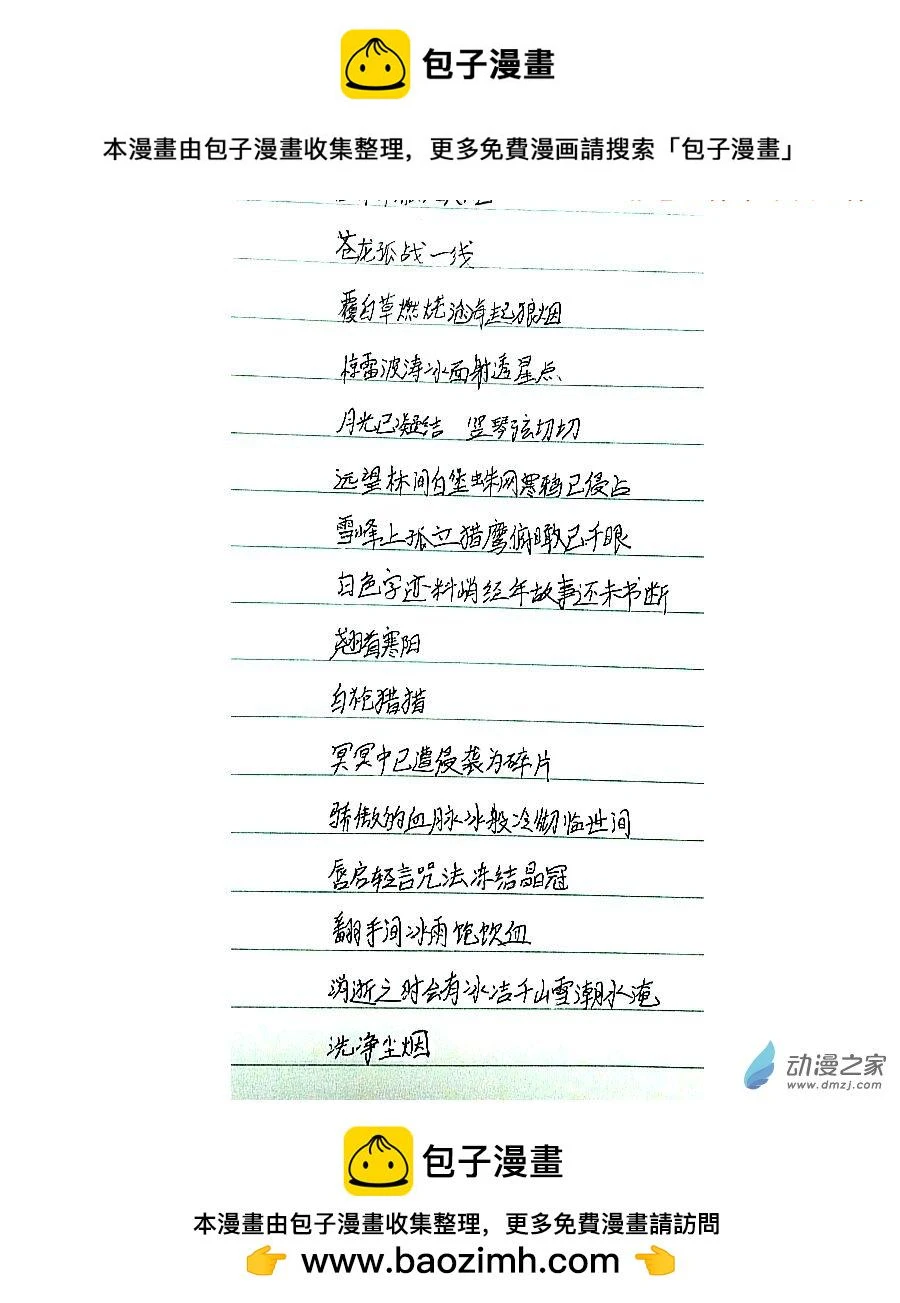 包子漫畫
本漫畫由包子漫畫收集整理，更多免費漫画請搜索「包子漫畫」
苍龙孤战一线
覆白草燃烧沧海起狼烟
惊雷波涛冰面射透星点
月光已凝结 竖琴弦切切
远望林间白堡蛛网寒鸦已侵占
雪峰上孤立猎鹰俯瞰已千眼
白色字迹料峭经年故事还未书断
翘首寒阳
白袍猎猎
冥冥中已遭侵袭为碎片
骄傲的血脉冰般冷彻临世间
唇启轻言咒法冻结晶冠
翻手间冰雨饱饮血
消逝之时会有冰洁千山雪潮水淹
洗净尘烟
动漫之家
www.dmzj.com
包子漫畫
本漫畫由包子漫畫收集整理，更多免費漫畫請訪問
👉 www.baozimh.com 👈